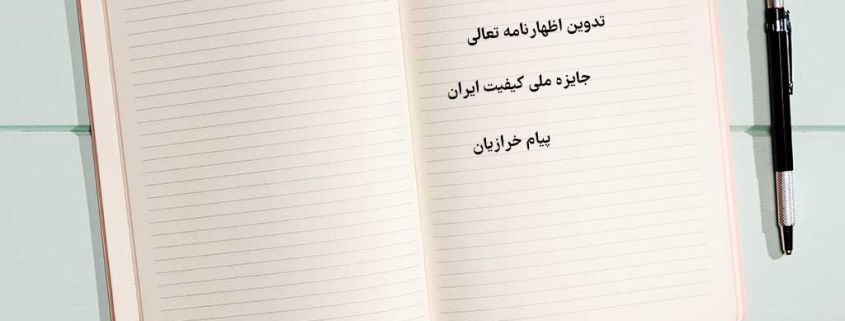 تدوین اظهارنامه تعالی
جایزه ملی کیفیت ایران
پیام خرازیان